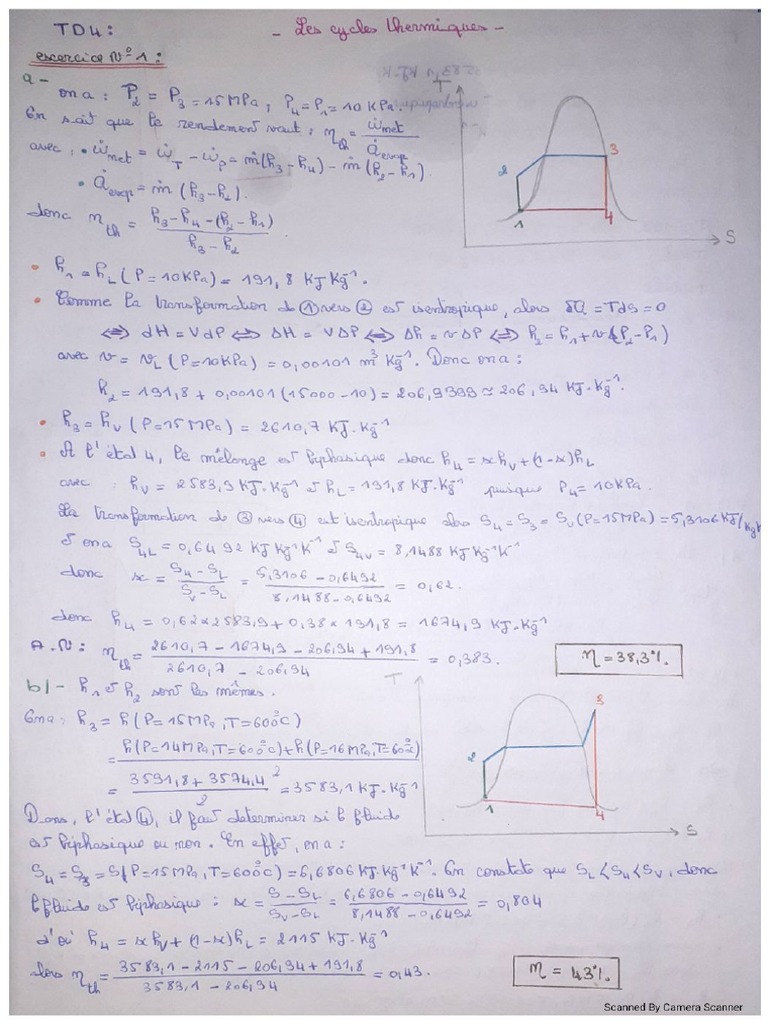 TD4:
- Les cycles thermiques -
exercice N°1:
a -
on a : P₂ = P₃ = 15 MPa ; P₄ = P₁ = 10 KPa.
En sait que le rendement vaut : η_th = Ẇnet / Q̇evap
avec : • Ẇnet = Ẇ_T - Ẇ_P = ṁ(h₃-h₄) - ṁ(h₂-h₁).
• Q̇evap = ṁ (h₃-h₂).
donc η_th = (h₃-h₄-(h₂-h₁)) / (h₃-h₂).
T
2
3
1
4
S
• h₁ = h_L (P=10KPa) = 191,8 KJ Kg⁻¹.
• Comme la transformation de ① vers ② est isentropique, alors δQ = TdS = 0
⟺ dH = VdP ⟺ ΔH = VΔP ⟺ Δh = vΔP ⟺ h₂ = h₁ + v(P₂-P₁)
avec v = v_L (P=10KPa) = 0,00101 m³ Kg⁻¹. Donc on a :
h₂ = 191,8 + 0,00101 (15000-10) = 206,9399 ≃ 206,94 KJ.Kg⁻¹.
• h₃ = h_V (P=15MPa) = 2610,7 KJ.Kg⁻¹
• A l'état 4, le mélange est biphasique donc h₄ = xh_V + (1-x)h_L
avec : h_V = 2583,9 KJ.Kg⁻¹ et h_L = 191,8 KJ.Kg⁻¹ puisque P₄ = 10KPa.
La transformation de ③ vers ④ est isentropique alors S₄ = S₃ = S_V (P=15MPa) = 5,3106 KJ/KgK
et on a S₄L = 0,6492 KJ Kg⁻¹K⁻¹ et S₄V = 8,1488 KJ Kg⁻¹K⁻¹
donc x = (S₄-S_L) / (S_V-S_L) = (5,3106-0,6492) / (8,1488-0,6492) = 0,62.
donc h₄ = 0,62 × 2583,9 + 0,38 × 191,8 = 1674,9 KJ.Kg⁻¹
A.N: η_th = (2610,7 - 1674,9 - 206,94 + 191,8) / (2610,7 - 206,94) = 0,383.
η = 38,3%.
b/- h₁ et h₂ sont les mêmes.
On a : h₃ = h (P=15MPa, T=600°C)
= (h(P=14MPa, T=600°C) + h(P=16MPa, T=600°C)) / 2
= (3591,8 + 3574,4) / 2 = 3583,1 KJ.Kg⁻¹
T
2
3
1
4
S
Dans, l'état ④, il faut determiner si le fluide
est biphasique ou non. En effet, on a :
S₄ = S₃ = S(P=15MPa, T=600°C) = 6,6806 KJ.Kg⁻¹K⁻¹. On constate que S_L < S₄ < S_V, donc
le fluide est biphasique : x = (S-S_L) / (S_V-S_L) = (6,6806-0,6492) / (8,1488-0,6492) = 0,804
d'où h₄ = xh_V + (1-x)h_L = 2115 KJ.Kg⁻¹
alors η_th = (3583,1 - 2115 - 206,94 + 191,8) / (3583,1 - 206,94) = 0,43.
η = 43%.
Scanned By Camera Scanner